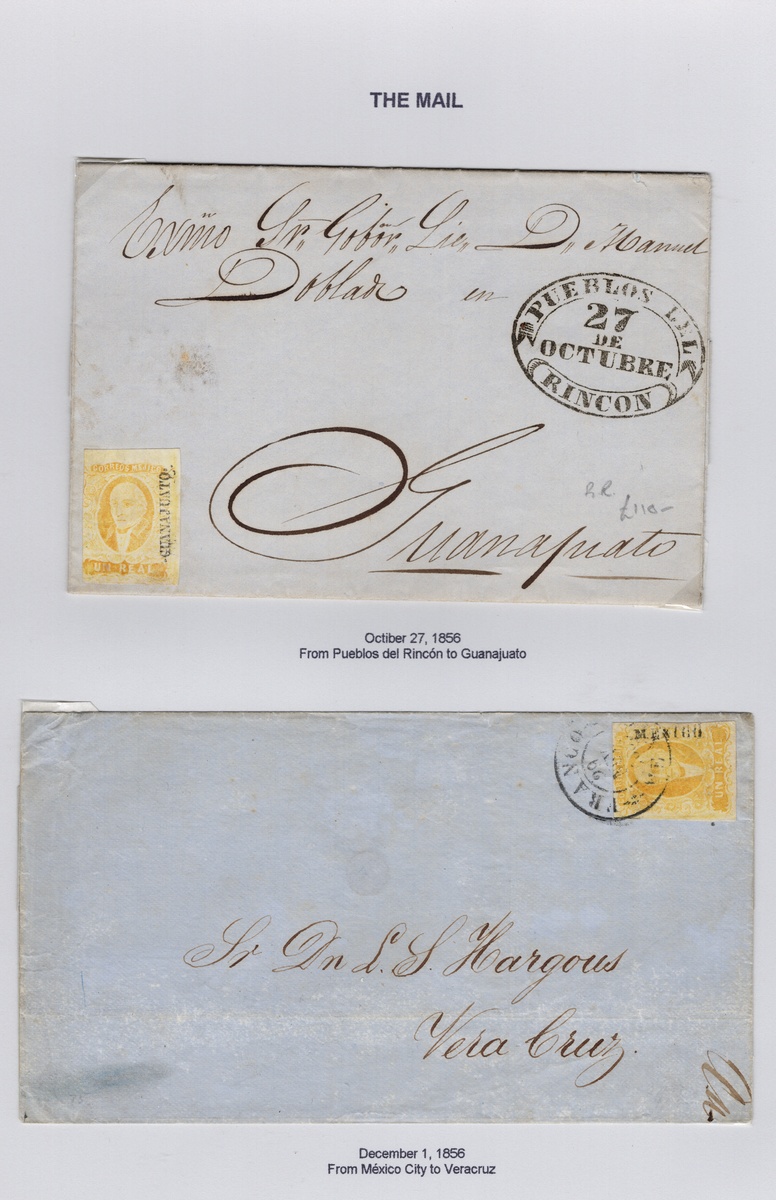 THE MAIL
Exmo Sr. Gobor. Lic. D. Manuel
Doblado en
PUEBLOS DEL
27
DE
OCTUBRE
RINCON
CORREOS MEJICO
GUANAJUATO
UN REAL
R.R.
£110-
Guanajuato
Octiber 27, 1856
From Pueblos del Rincón to Guanajuato
MEXICO
FRANCO
UN REAL
Sr Dn L. S. Hargous
Vera Cruz.
December 1, 1856
From México City to Veracruz